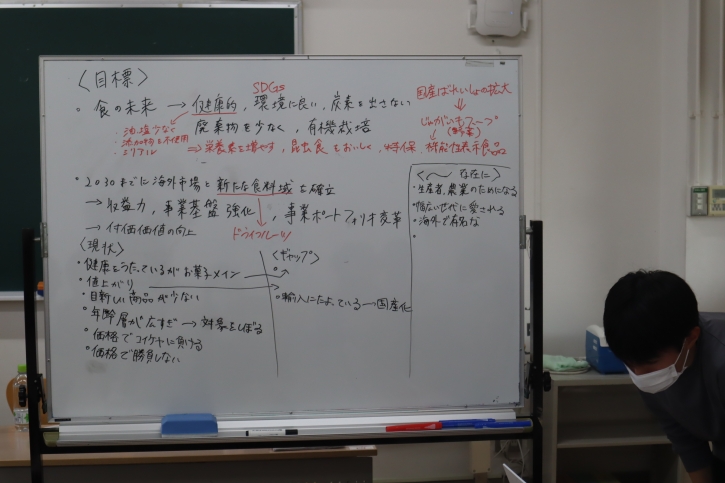 〈目標〉
SDGs
。食の未来 → 健康的, 環境に良い, 炭素を出さない
廃棄物を少なく, 有機栽培
・油、塩少なく
・添加物を不使用
・シリアル
⇒栄養素を増やす, 昆虫食をおいしく, 特保, 機能性表示食品
国産ばれいしょの拡大
じゃがいもスープ
(野菜)
・2030までに海外市場と新たな食料域を確立
→ 収益力, 事業基盤強化, 事業ポートフォリオ変革
→ 付価価値の向上
ドライフルーツ
〈現状〉
・健康をうたっているがお菓子メイン
・値上がり
・目新しい商品が少ない
・年齢層が広すぎ → 対象をしぼる
・価格でコイケヤに負ける
・価格で勝負しない
〈ギャップ〉
・輸入にたよっている→国産化
〈〜 存在に〉
・生産者, 農業のためになる
・幅広い世代に愛される
・海外で有名な